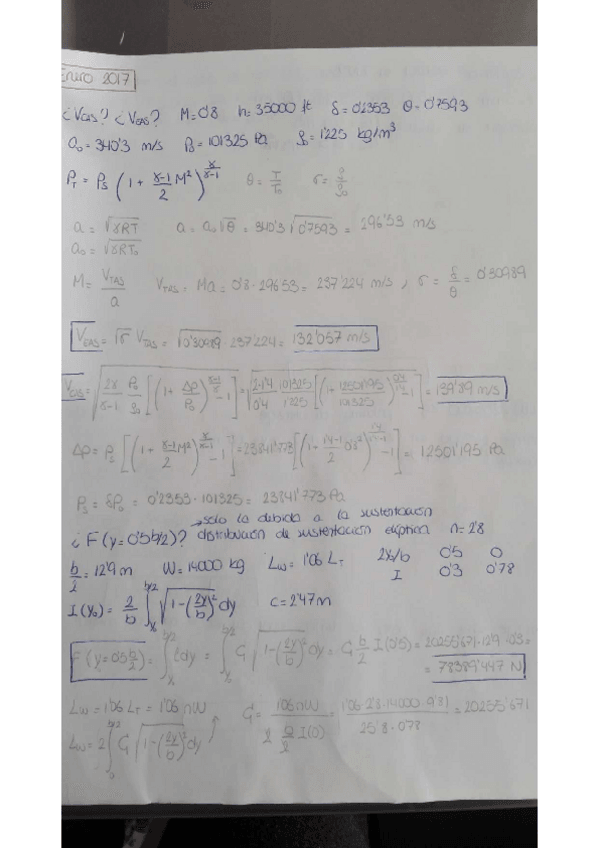 Enero 2017
¿VCAS? ¿VEAS? M=0'8 h=35000 ft δ=0'2353 θ=0'7593
a₀=340'3 m/s P₀=101325 Pa ρ₀=1'225 kg/m³
P_T = P_S (1 + (γ-1)/2 M²)^(γ/(γ-1)) θ=T/T₀ σ=ρ/ρ₀
a = √(γRT) a = a₀√θ = 340'3 √0'7593 = 296'53 m/s
a₀ = √(γRT₀)
M = V_TAS/a V_TAS = Ma = 0'8·296'53 = 237'224 m/s, σ = δ/θ = 0'30989
V_EAS = √σ V_TAS = √0'30989 · 237'224 = 132'057 m/s
V_CAS = √(2γ/(γ-1) P₀/ρ₀ [(1 + ΔP/P₀)^((γ-1)/γ) -1]) = √(2·1'4/0'4 101325/1'225 [(1+ 12501'195/101325)^(0'4/1'4) -1]) = 139'89 m/s
ΔP = P_S [(1 + (γ-1)/2 M²)^(γ/(γ-1)) -1] = 23841'773 [(1 + (1'4-1)/2 0'8²)^(1'4/(1'4-1)) -1] = 12501'195 Pa
P_S = δP₀ = 0'2353 · 101325 = 23841'773 Pa
→ sólo la debida a la sustentación
¿F(y=0'5b/2)? distribución de sustentación elíptica n=2'8
b/2 = 12'9 m W = 14000 kg L_W = 1'06 L_T 2y₀/b 0'5 0
I 0'3 0'78
I(y₀) = 2/b ∫_{y₀}^{b/2} √(1-(2y/b)²) dy c=2'47m
F(y=0'5 b/2) = ∫_{y₀}^{b/2} l dy = ∫_{y₀}^{b/2} G √(1-(2y/b)²) dy = G b/2 I(0'5) = 20255'671·12'9·0'3 =
= 78389'447 N
L_W = 1'06 L_T = 1'06 nW G = 1'06 nW / (2 b/2 I(0)) = 1'06·2'8·14000·9'81 / (25'8·0'78) = 20255'671
L_W = 2 ∫_0^{b/2} G √(1-(2y/b)²) dy